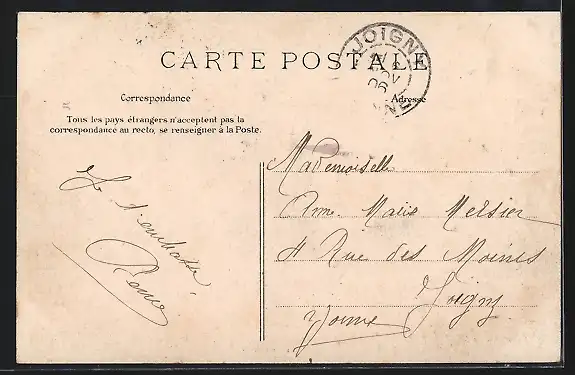 CARTE POSTALE
JOIGNY
Correspondance
Adresse
Tous les pays étrangers n'acceptent pas la
correspondance au recto, se renseigner à la Poste.
Je t'embrasse
Mademoiselle
Anne-Marie Mersier
4 Rue des Moines
Joigny
Yonne